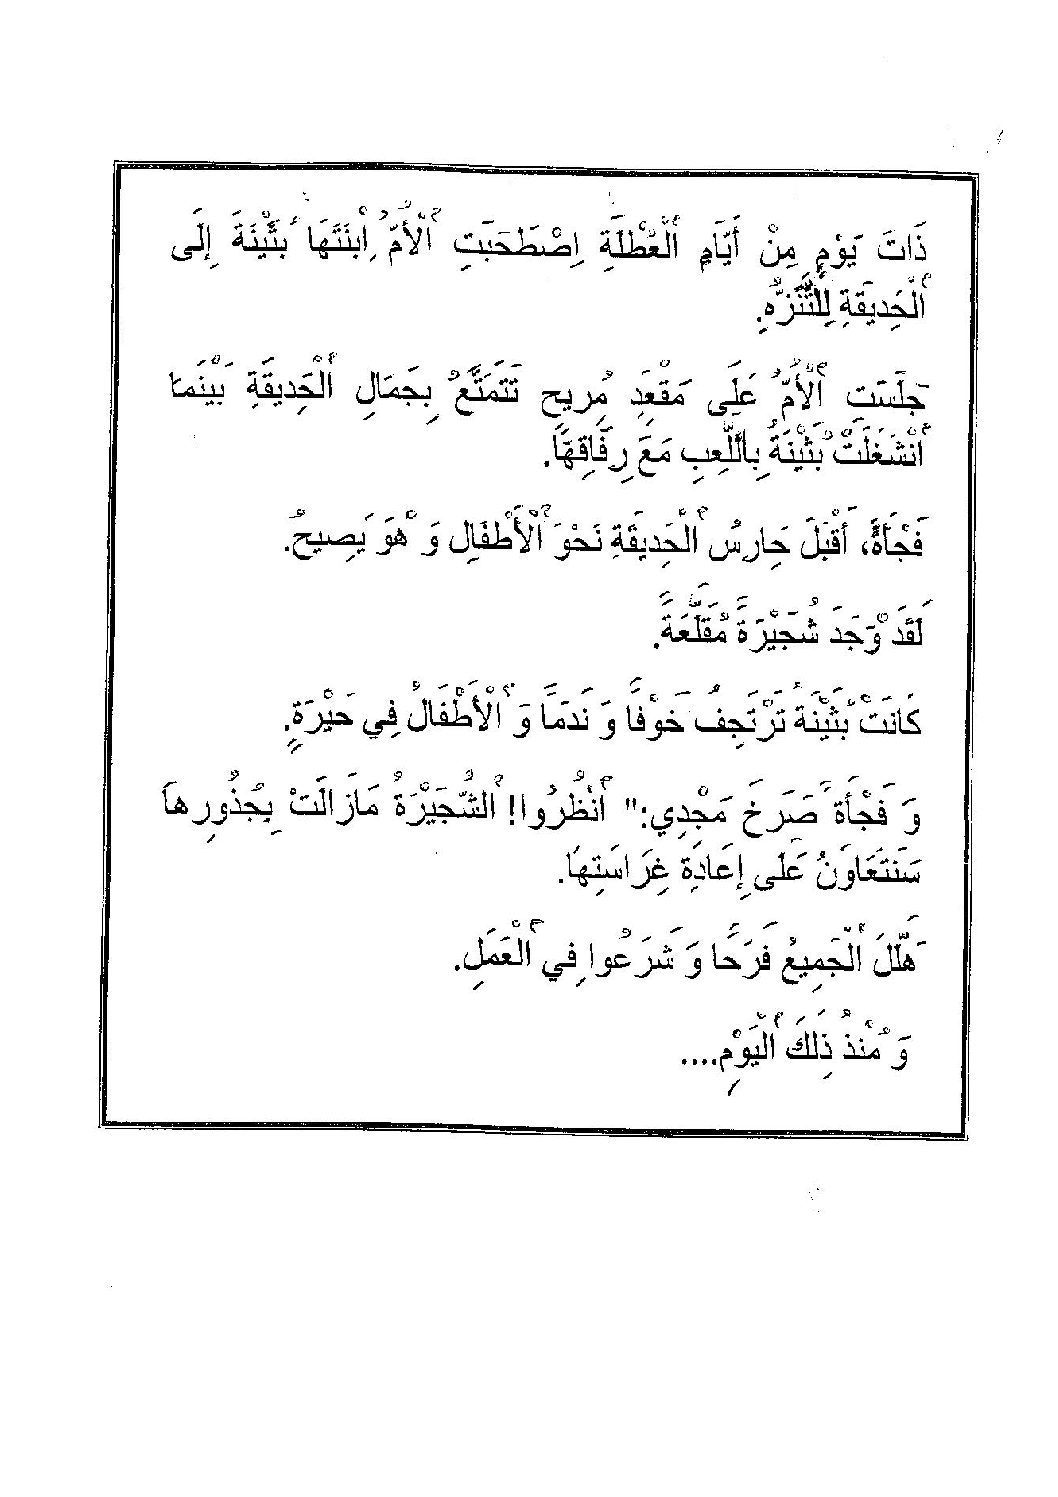 ذَاتَ يَوْمٍ مِنْ أَيَّامِ ٱلْعُطْلَةِ اِصْطَحَبَتِ ٱلْأُمُّ اِبْنَتَهَا بُثَيْنَةَ إِلَى
ٱلْحَدِيقَةِ لِلتَّنَزُّهِ.
جَلَسَتِ ٱلْأُمُّ عَلَى مَقْعَدٍ مُرِيحٍ تَتَمَتَّعُ بِجَمَالِ ٱلْحَدِيقَةِ بَيْنَمَا
ٱنْشَغَلَتْ بُثَيْنَةُ بِاللَّعِبِ مَعَ رِفَاقِهَا.
فَجْأَةً، أَقْبَلَ حَارِسُ ٱلْحَدِيقَةِ نَحْوَ ٱلْأَطْفَالِ وَ هْوَ يَصِيحُ.
لَقَدْ وَجَدَ شُجَيْرَةً مُقَلَّعَةً.
كَانَتْ بُثَيْنَةُ تَرْتَجِفُ خَوْفًا وَ نَدَمًا وَ ٱلْأَطْفَالُ فِي حَيْرَةٍ.
وَ فَجْأَةً صَرَخَ مَجْدِي:" ٱنْظُرُوا! ٱلشُّجَيْرَةُ مَازَالَتْ بِجُذُورِهَا
سَنَتَعَاوَنُ عَلَى إِعَادَةِ غِرَاسَتِهَا.
هَلَّلَ ٱلْجَمِيعُ فَرَحًا وَ شَرَعُوا فِي ٱلْعَمَلِ.
وَ مُنْذُ ذَلِكَ ٱلْيَوْمِ....